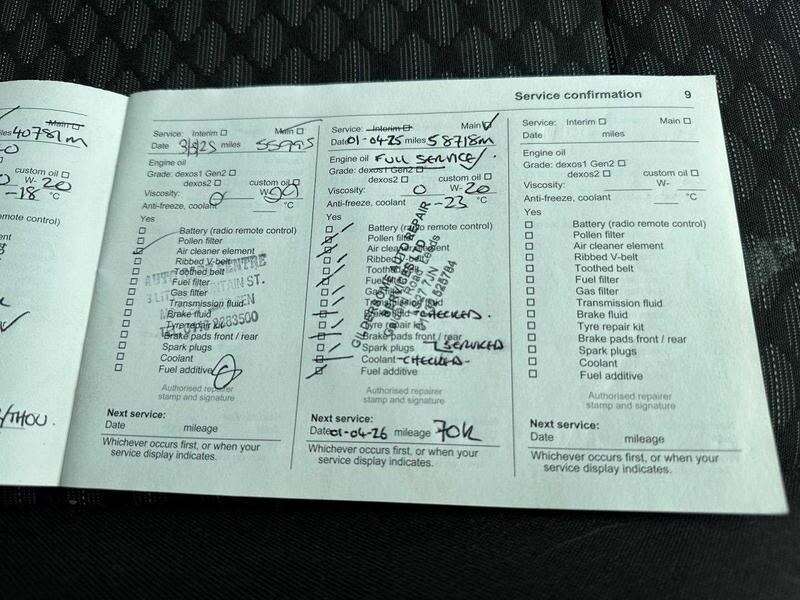 Service confirmation 9
Main
40781m
custom oil
W- 20
-18 °C
remote control)
/THOU.
Service: Interim Main
Date 3/3/23 miles 55995
Engine oil
Grade: dexos1 Gen2
dexos2 custom oil
Viscosity: 0 W-
Anti-freeze, coolant °C
Yes
Battery (radio remote control)
Pollen filter
Air cleaner element
Ribbed V-belt
Toothed belt
Fuel filter
Gas filter
Transmission fluid
Brake fluid
Tyre repair kit
Brake pads front / rear
Spark plugs
Coolant
Fuel additive
Authorised repairer
stamp and signature
Next service:
Date mileage
Whichever occurs first, or when your
service display indicates.
Service: Interim Main
Date 01-04-25 miles 58718m
Engine oil FULL SERVICE
Grade: dexos1 Gen2
dexos2 custom oil
Viscosity: 0 W- 20
Anti-freeze, coolant -23 °C
Yes
Battery (radio remote control)
Pollen filter
Air cleaner element
Ribbed V-belt
Toothed belt
Fuel filter
Gas filter
Transmission fluid
Brake fluid -CHECKED.
Tyre repair kit
Brake pads front / rear
Spark plugs SERVICED
Coolant -CHECKED-
Fuel additive
Authorised repairer
stamp and signature
Next service:
Date 01-04-26 mileage 70K
Whichever occurs first, or when your
service display indicates.
Service: Interim Main
Date miles
Engine oil
Grade: dexos1 Gen2
dexos2 custom oil
Viscosity: W-
Anti-freeze, coolant °C
Yes
Battery (radio remote control)
Pollen filter
Air cleaner element
Ribbed V-belt
Toothed belt
Fuel filter
Gas filter
Transmission fluid
Brake fluid
Tyre repair kit
Brake pads front / rear
Spark plugs
Coolant
Fuel additive
Authorised repairer
stamp and signature
Next service:
Date mileage
Whichever occurs first, or when your
service display indicates.